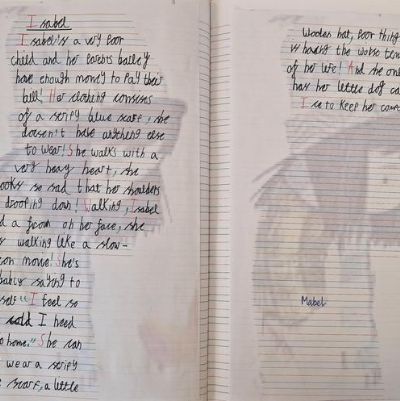 Isabel
Isabel's a very poor
child and her parents bairley
have enough money to pay their
bill! Her clothing consises
of a stripy blue scarf, she
doesn't have anything else
to wear! She walks with a
very heavy heart, she
looks so sad that her shoulders
drooting down! Walking, Isabel
a frown on her face, she
walking like a slow-
ion movie! She's
bably saying to
self "I feel so
cold I need
home." She can
wear a stripy
scarf, a little
Woolen hat, poor thing
is having the worse time
of her life! And she only
has her little dog ca
to keep her com
Mabel